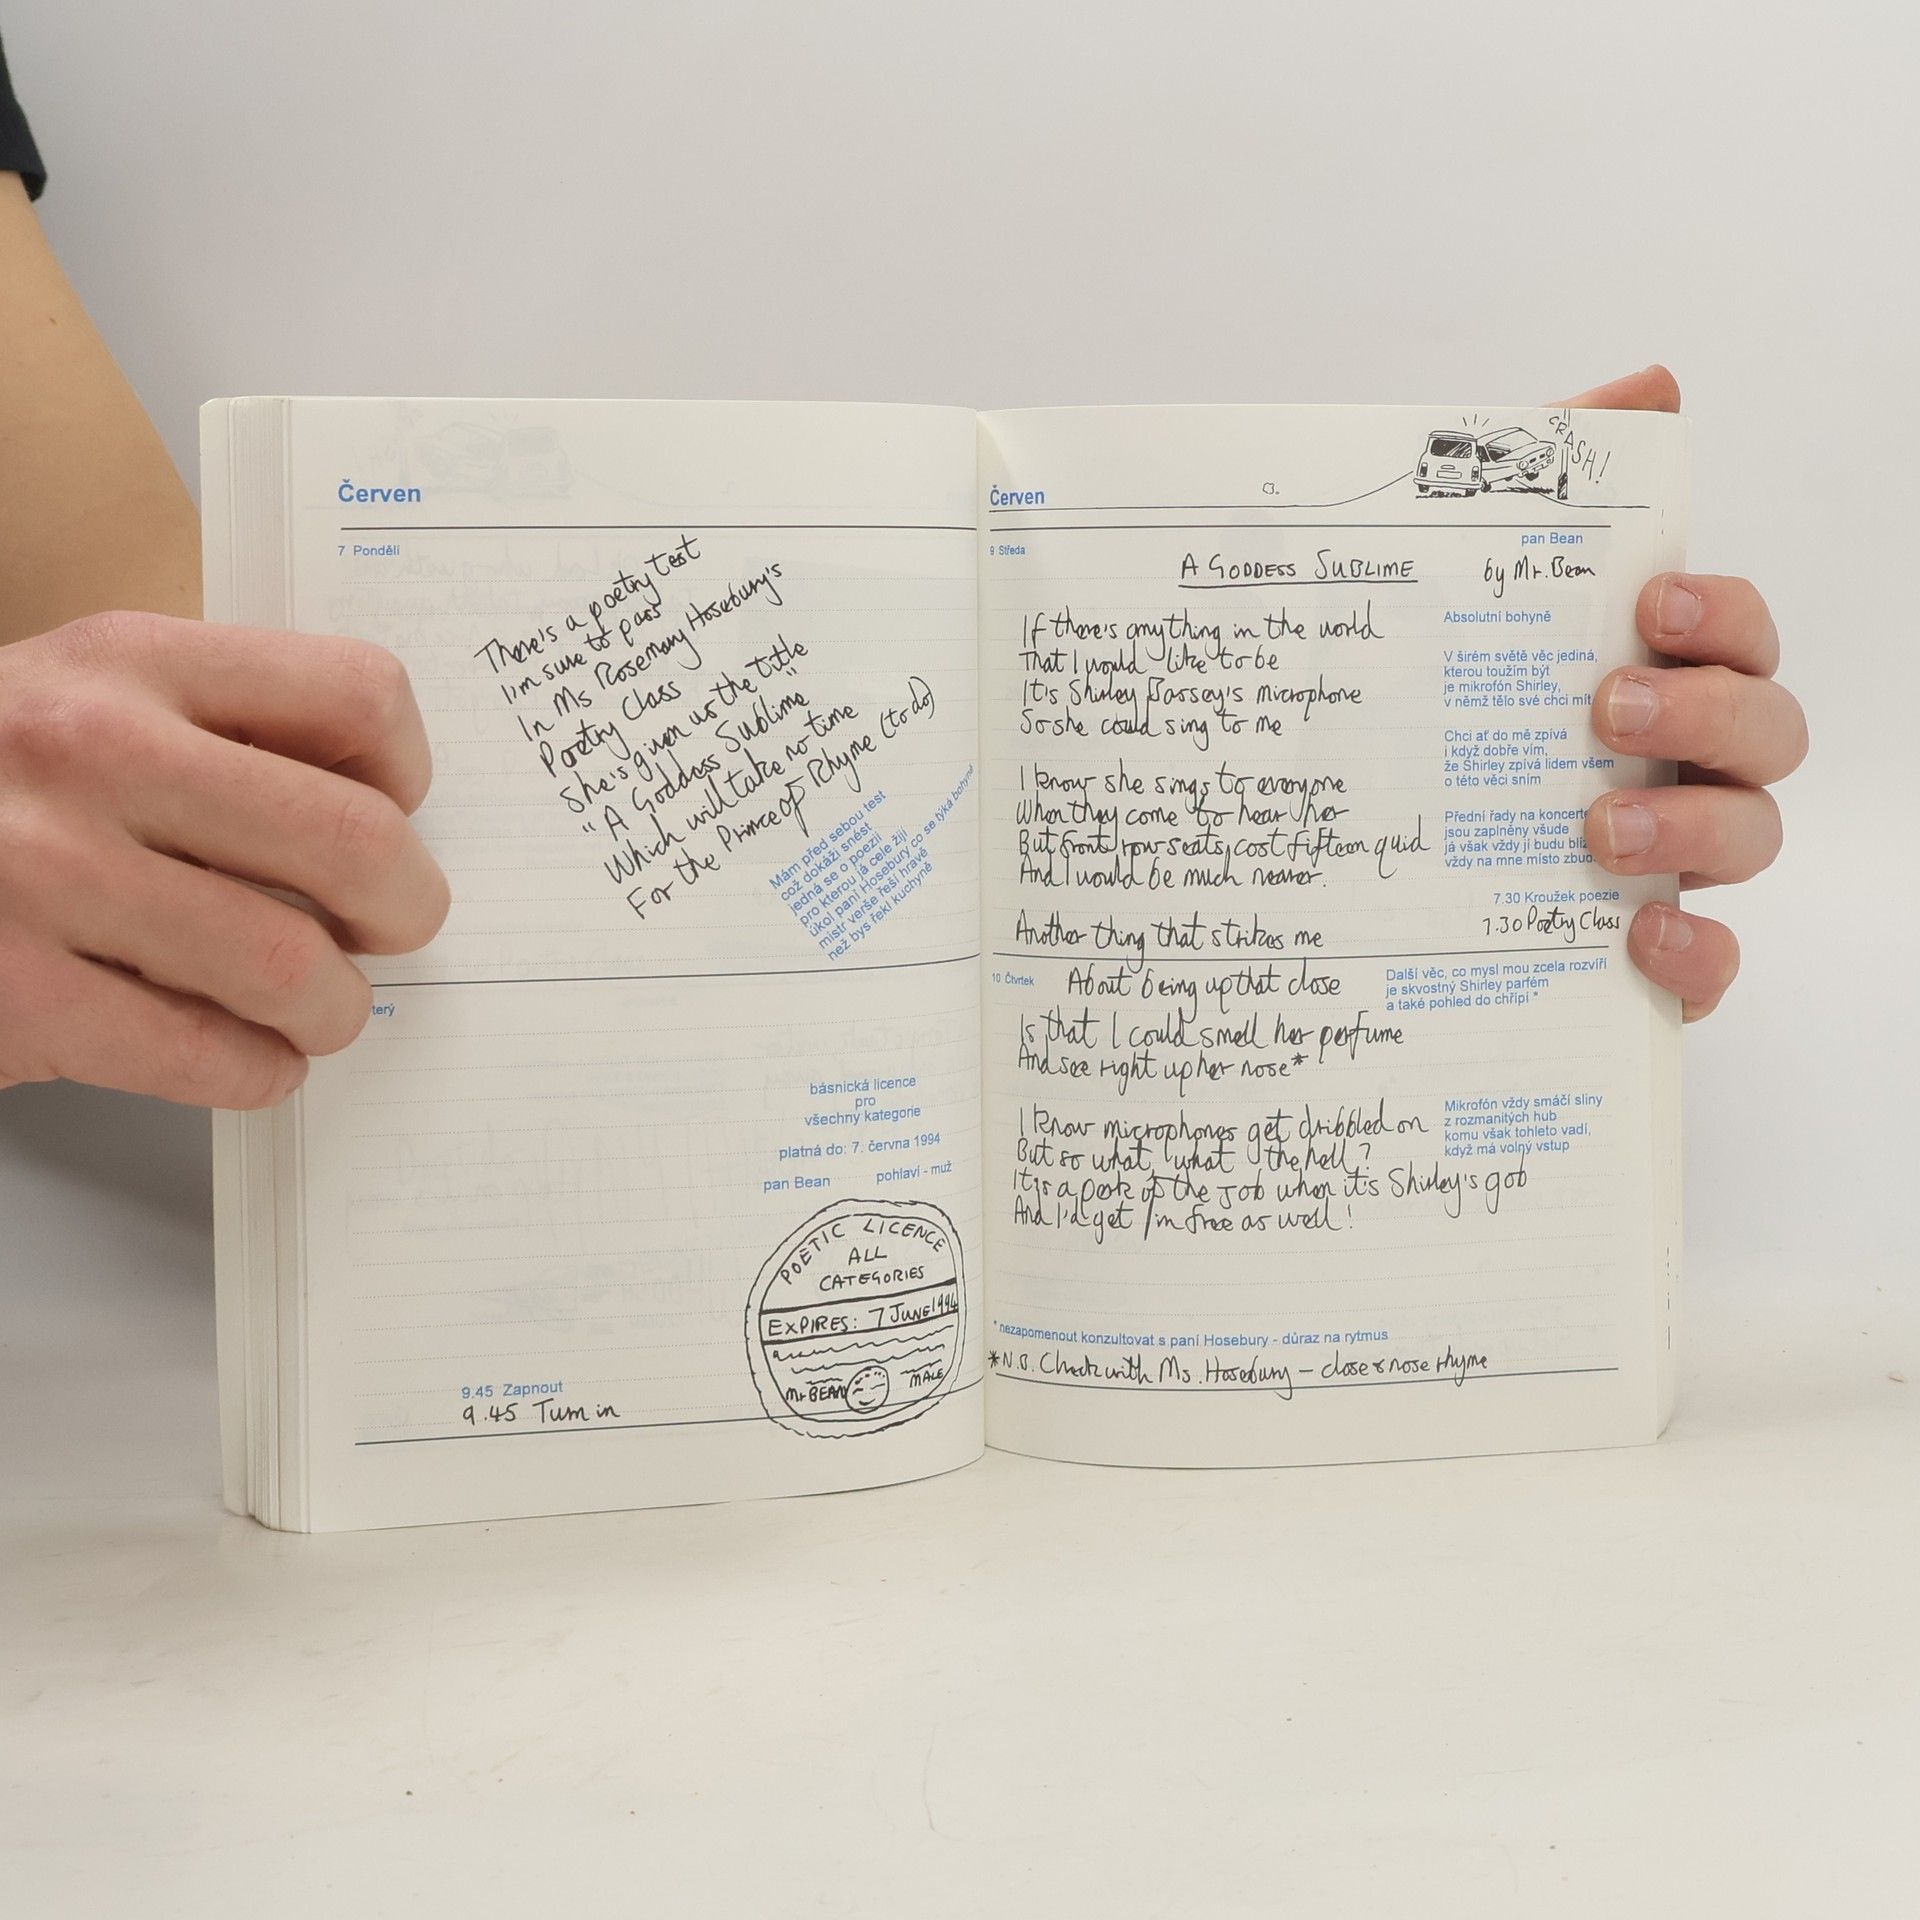 Červen
7 Pondělí
There's a poetry test
I'm sure to pass
In Ms Rosemary Hosebury's
Poetry Class
She's given us the title
"A Goddess Sublime"
Which will take no time
For the Prince of Rhyme (to do)
Mám před sebou test
což dokáži snést
jedná se o poezii
pro kterou já cele žiji
úkol paní Hosebury co se týká bohyně
mistr verše řeší hravě
než bys řekl kuchyně
terý
básnická licence
pro
všechny kategorie
platná do: 7. června 1994
pan Bean pohlaví - muž
POETIC LICENCE
ALL
CATEGORIES
EXPIRES: 7 JUNE 1994
Mr BEAN MALE
9.45 Zapnout
9.45 Turn in
CRASH!
Červen
9 Středa
pan Bean
A GODDESS SUBLIME by Mr. Bean
If there's anything in the world
That I would like to be
It's Shirley Bassey's microphone
So she could sing to me
I know she sings to everyone
When they come to hear her
But front row seats cost fifteen quid
And I would be much nearer.
Another thing that strikes me
Absolutní bohyně
V širém světě věc jediná,
kterou toužím být
je mikrofón Shirley,
v němž tělo své chci mít
Chci ať do mě zpívá
i když dobře vím,
že Shirley zpívá lidem všem
o této věci sním
Přední řady na koncertě
jsou zaplněny všude
já však vždy jí budu blíž
vždy na mne místo zbud
7.30 Kroužek poezie
7.30 Poetry Class
10 Čtvrtek
About being up that close
Is that I could smell her perfume
And see right up her nose*
I know microphones get dribbled on
But so what, what the hell?
It's a perk of the job when it's Shirley's gob
And I'd get in free as well!
Další věc, co mysl mou zcela rozvíří
je skvostný Shirley parfém
a také pohled do chřípí *
Mikrofón vždy smáčí sliny
z rozmanitých hub
komu však tohleto vadí,
když má volný vstup
* nezapomenout konzultovat s paní Hosebury - důraz na rytmus
*N.B. Check with Ms. Hosebury – close & nose rhyme